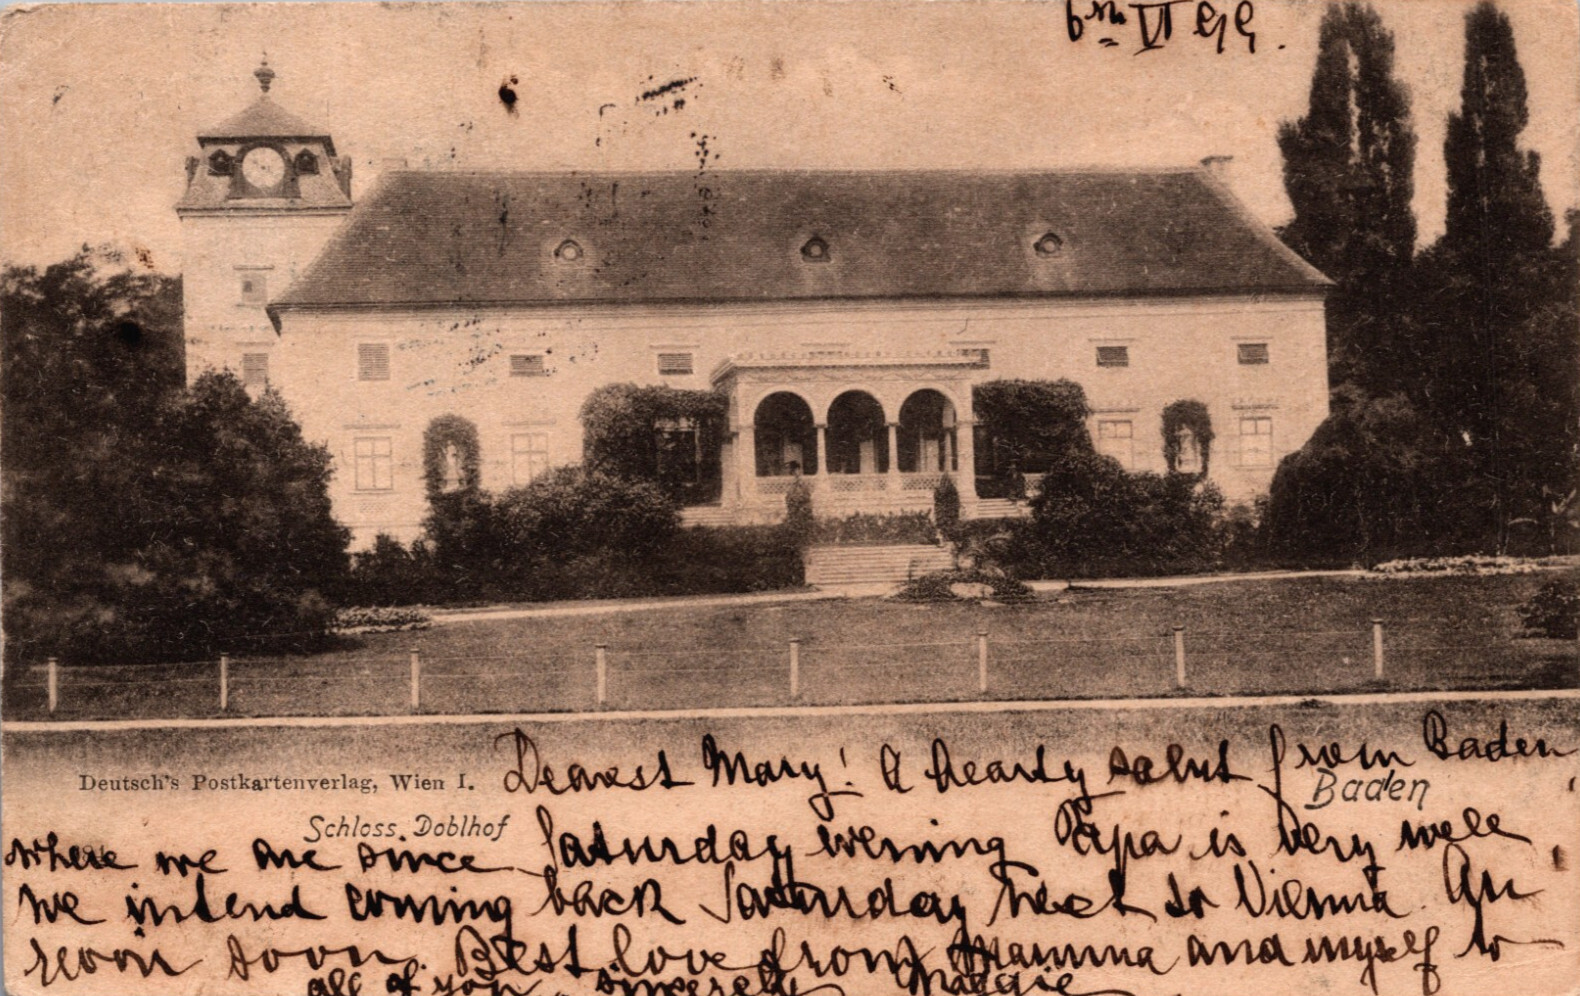 6th VI 99.
Dearest Mary! A hearty salut from Baden,
Deutsch's Postkartenverlag, Wien I.
Baden
Schloss Doblhof
where we are since Saturday evening Papa is very well,
we intend coming back Saturday next to Vienna. Au
revoir soon. Best love from Mamma and myself to
all of you, sincerely Maggie